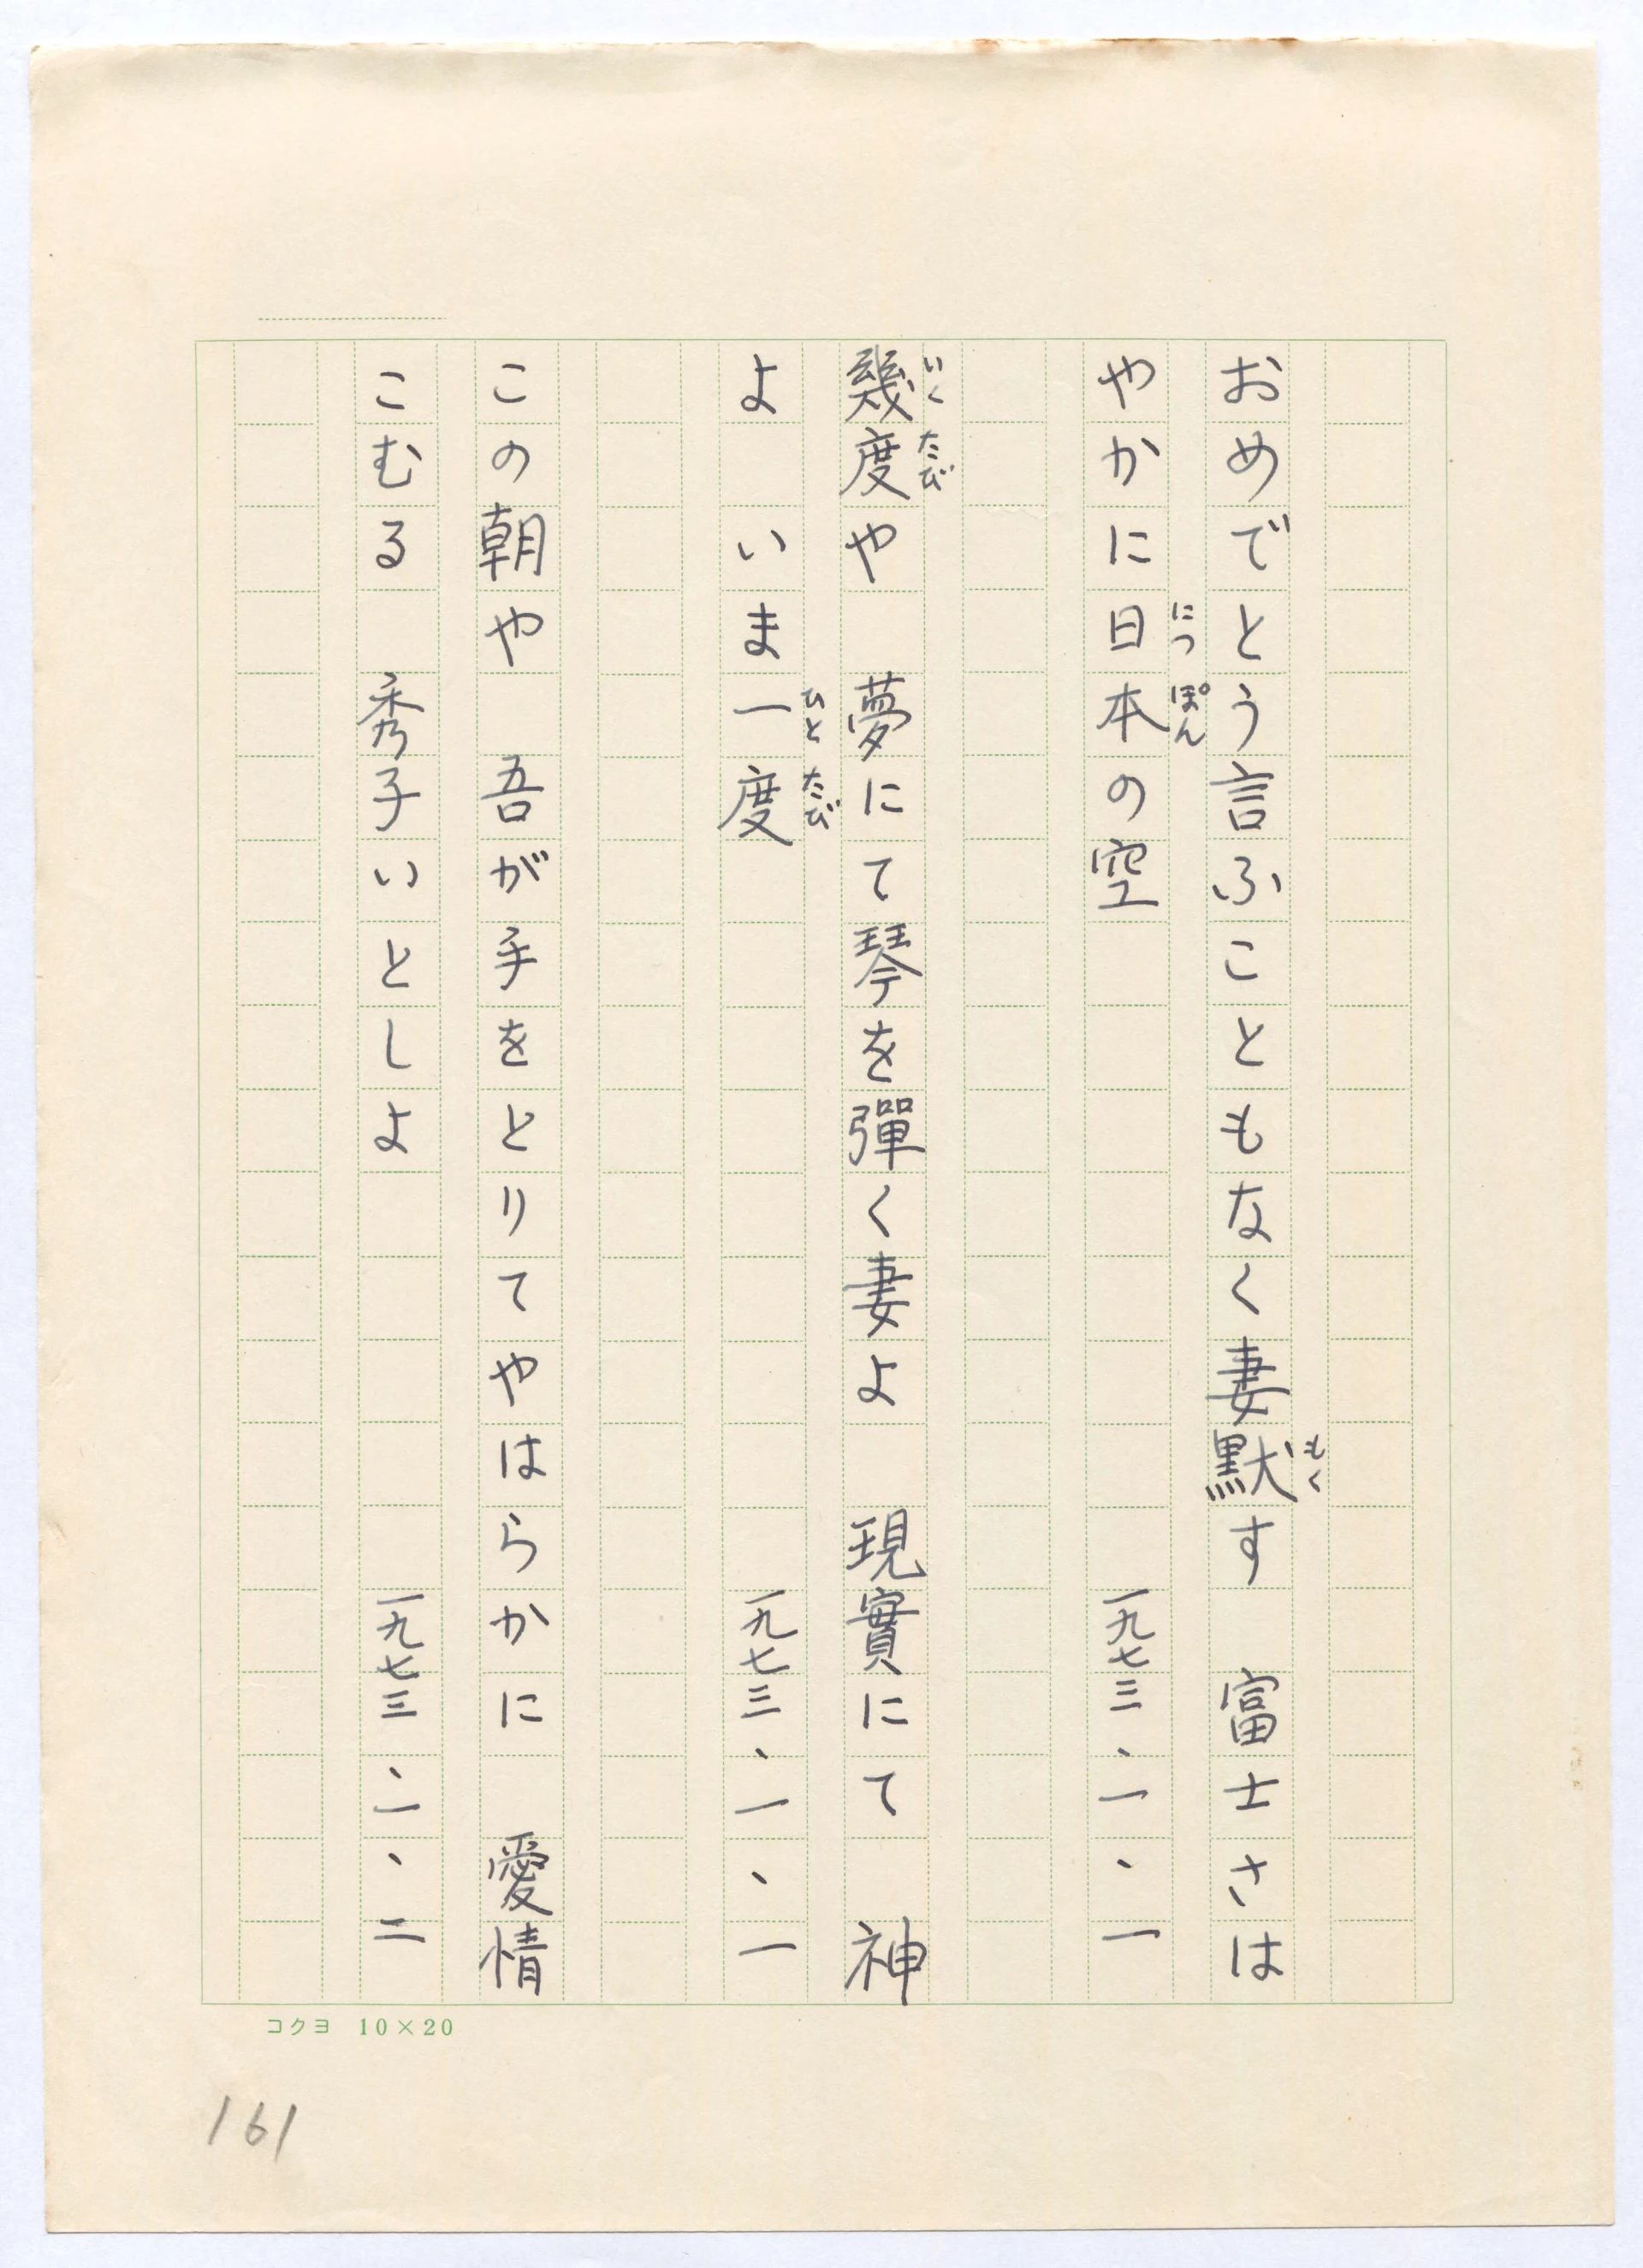 おめでとう言ふこともなく妻默す　富士さは
もく
やかに日本の空
にっぽん
一九七三、一、一
幾度や　夢にて琴を彈く妻よ　現實にて　神
いくたび
よ　いま一度
ひとたび
一九七三、一、一
この朝や　吾が手をとりてやはらかに　愛情
こむる　秀子いとしよ
一九七三、一、二
コクヨ 10×20
161